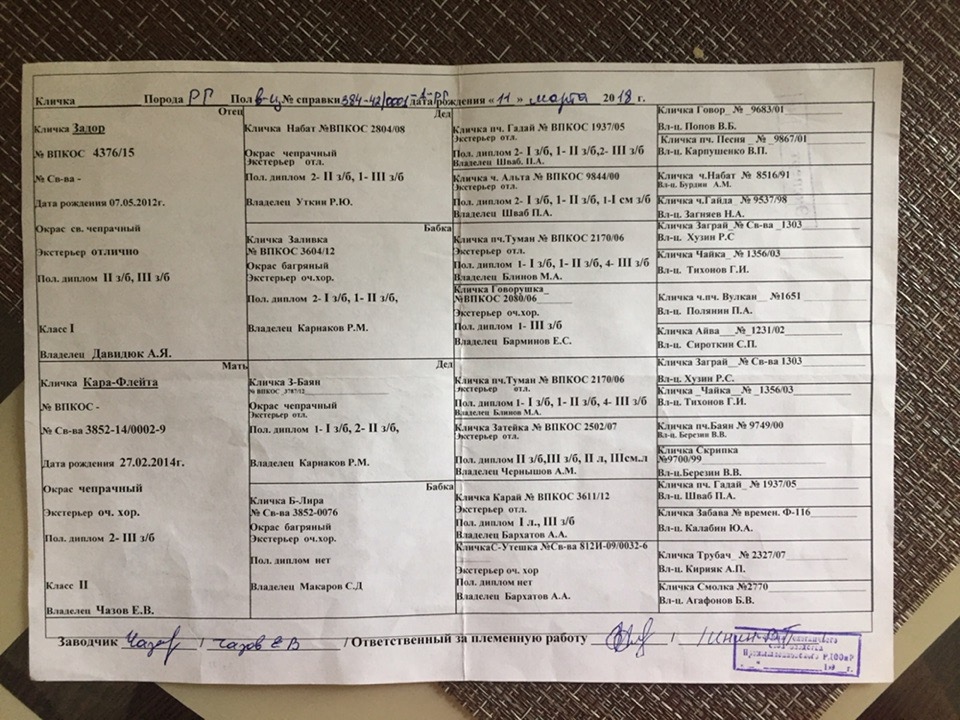 Кличка Порода РГ Пол в-ц № справки 384-42/0001-А-РГ дата рождения « 11 » марта 2018 г.
Отец
Кличка Задор
№ ВПКОС 4376/15
№ Св-ва -
Дата рождения 07.05.2012г.
Окрас св. чепрачный
Экстерьер отлично
Пол. диплом II з/б, III з/б
Класс I
Владелец Давидюк А.Я.
Мать
Кличка Кара-Флейта
№ ВПКОС -
№ Св-ва 3852-14/0002-9
Дата рождения 27.02.2014г.
Окрас чепрачный
Экстерьер оч. хор.
Пол. диплом 2- III з/б
Класс II
Владелец Чазов Е.В.
Дед
Кличка Набат №ВПКОС 2804/08
Окрас чепрачный
Экстерьер отл.
Пол. диплом 2- II з/б, 1- III з/б
Владелец Уткин Р.Ю.
Бабка
Кличка Заливка
№ ВПКОС 3604/12
Окрас багряный
Экстерьер оч.хор.
Пол. диплом 2- I з/б, 1- II з/б,
Владелец Карнаков Р.М.
Дед
Кличка З-Баян
№ ВПКОС 3787/12
Окрас чепрачный
Экстерьер отл.
Пол. диплом 1- I з/б, 2- II з/б,
Владелец Карнаков Р.М.
Бабка
Кличка Б-Лира
№ Св-ва 3852-0076
Окрас багряный
Экстерьер оч.хор.
Пол. диплом нет
Владелец Макаров С.Д
Кличка пч. Гадай № ВПКОС 1937/05
Экстерьер отл.
Пол. диплом 2- I з/б, 1- II з/б,2- III з/б
Владелец Шваб. П.А.
Кличка ч. Альта № ВПКОС 9844/00
Экстерьер отл.
Пол. диплом 2- I з/б, 1- II з/б, 1-I см з/б
Владелец Шваб П.А.
Кличка пч.Туман № ВПКОС 2170/06
Экстерьер отл.
Пол. диплом 1- I з/б, 1- II з/б, 4- III з/б
Владелец Блинов М.А.
Кличка Говорушка_
№ВПКОС 2080/06
Экстерьер оч.хор.
Пол. диплом 1- III з/б
Владелец Барминов Е.С.
Кличка пч.Туман № ВПКОС 2170/06
Экстерьер отл.
Пол. диплом 1- I з/б, 1- II з/б, 4- III з/б
Владелец Блинов М.А.
Кличка Затейка № ВПКОС 2502/07
Экстерьер отл.
Пол. диплом II з/б,III з/б, II л, IIIсм.л
Владелец Чернышов А.М.
Кличка Карай № ВПКОС 3611/12
Экстерьер отл.
Пол. диплом I л., III з/б
Владелец Бархатов А.А.
КличкаС-Утешка №Св-ва 812И-09/0032-6
Экстерьер оч. хор
Пол. диплом нет
Владелец Бархатов А.А.
Кличка Говор_ № 9683/01
Вл-ц. Попов В.Б.
Кличка пч. Песня _ № 9867/01
Вл-ц. Карпушенко В.П.
Кличка ч.Набат № 8516/91
Вл-ц. Бурдин А.М.
Кличка ч.Гайда_ № 9537/98
Вл-ц. Загняев Н.А.
Кличка Заграй_№ Св-ва _1303
Вл-ц. Хузин Р.С
Кличка Чайка_ № 1356/03
Вл-ц. Тихонов Г.И.
Кличка ч.пч. Вулкан__ №1651
Вл-ц. Полянин П.А.
Кличка Айва ___№_1231/02
Вл-ц. Сироткин С.П.
Кличка Заграй __ № Св-ва 1303
Вл-ц. Хузин Р.С.
Кличка _Чайка__№_ 1356/03
Вл-ц. Тихонов Г.И.
Кличка пч.Баян № 9749/00
Вл-ц. Березин В.В.
Кличка Скрипка
№9700/99
Вл-ц.Березин В.В.
Кличка пч. Гадай_ № 1937/05
Вл-ц. Шваб П.А.
Кличка Забава № времен. Ф-116
Вл-ц. Калабин Ю.А.
Кличка Трубач _№ 2327/07
Вл-ц. Кирияк А.П.
Кличка Смолка №2770
Вл-ц. Агафонов Б.В.
Заводчик / Чазов Е В / Ответственный за племенную работу / /